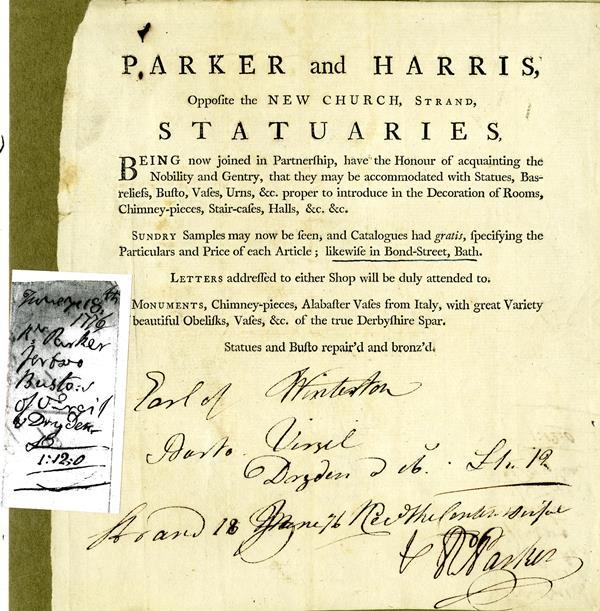 PARKER and HARRIS,
Oppoſite the NEW CHURCH, STRAND,
STATUARIES,
BEING now joined in Partnerſhip, have the Honour of acquainting the
Nobility and Gentry, that they may be accommodated with Statues, Bas-
relieſs, Buſto, Vaſes, Urns, &c. proper to introduce in the Decoration of Rooms,
Chimney-pieces, Stair-caſes, Halls, &c. &c.
SUNDRY Samples may now be ſeen, and Catalogues had gratis, ſpecifying the
Particulars and Price of each Article; likewiſe in Bond-Street, Bath.
LETTERS addreſſed to either Shop will be duly attended to.
MONUMENTS, Chimney-pieces, Alabaſter Vaſes from Italy, with great Variety
beautiful Obeliſks, Vaſes, &c. of the true Derbyſhire Spar.
Statues and Buſto repair'd and bronz'd.
Earl of Winterton
Busto Virgil
Dryden
Strand 18 June 76
Parker
June 18th
1776
Parker
for two
Busto:s
of
& Dryden
1:12:0